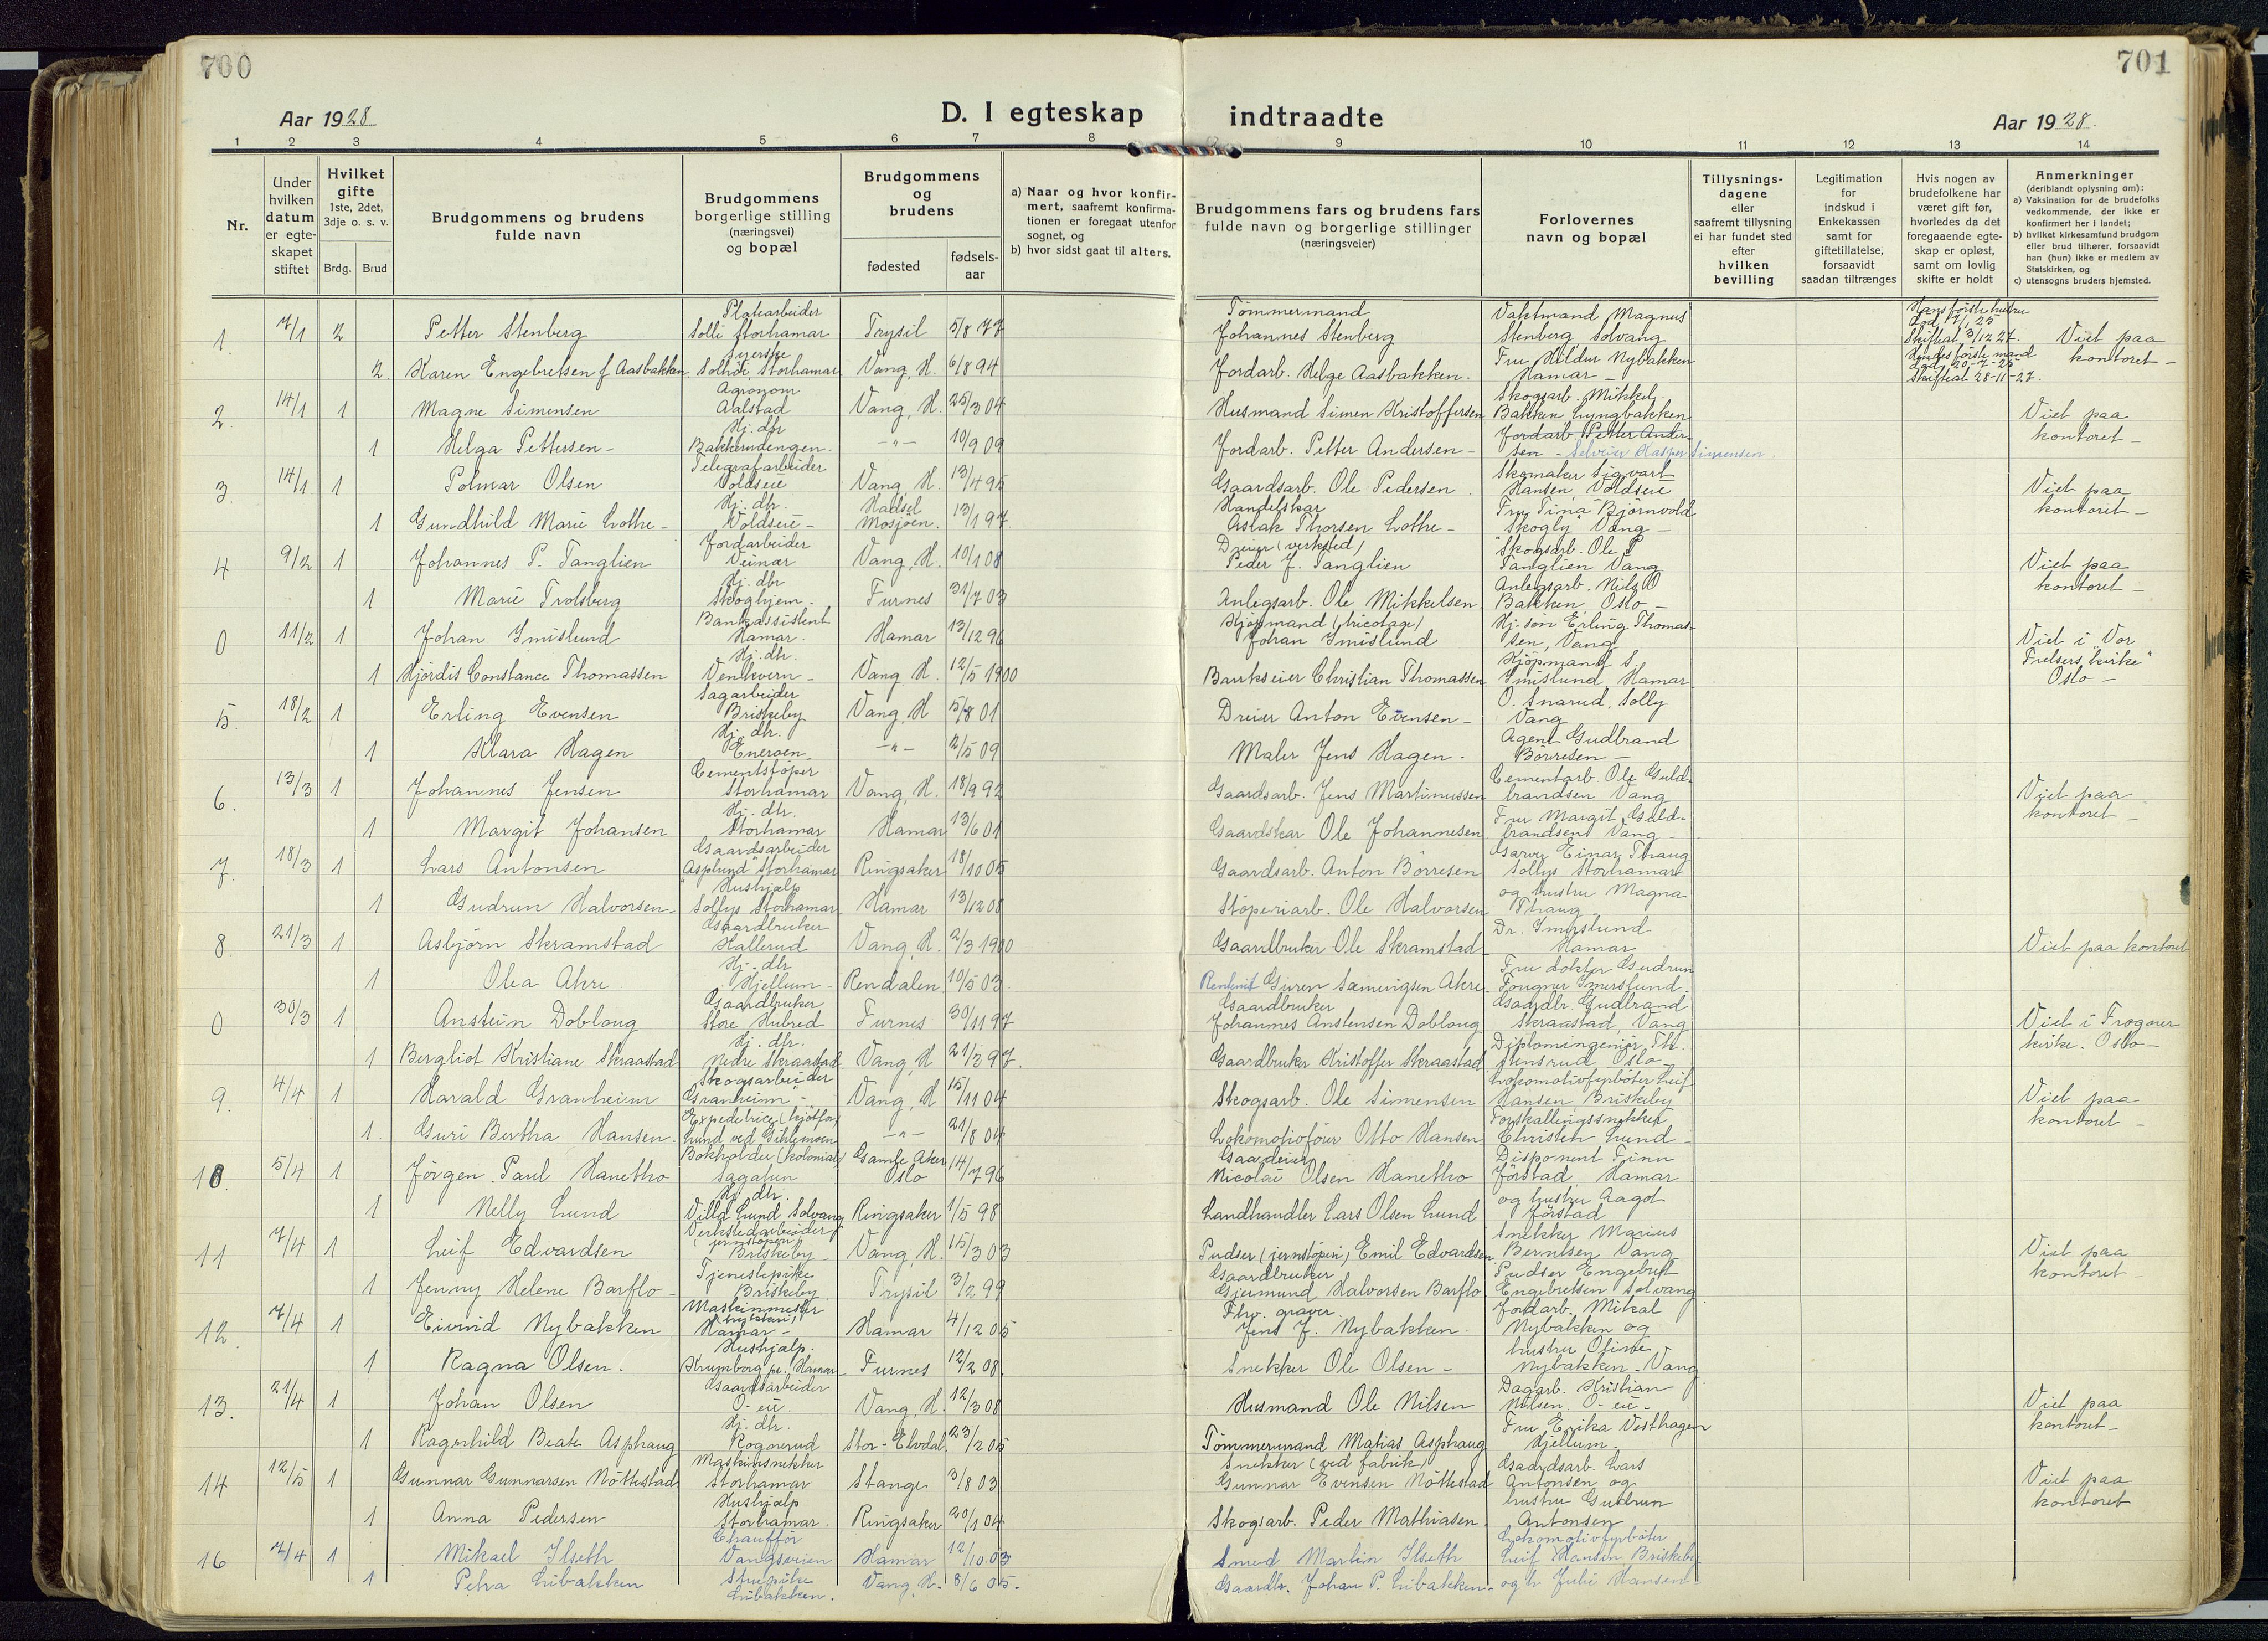 700
701
Aar 1928
D. I egteskap
indtraadte
Aar 1928.
1 2 3 4 5 6 7 8 9 10 11 12 13 14
Nr.
Under hvilken datum er egteskapet stiftet
Hvilket gifte 1ste, 2det, 3dje o. s. v.
Brdg. Brud
Brudgommens og brudens fulde navn
Brudgommens borgerlige stilling (næringsvei) og bopæl
Brudgommens og brudens
fødested
fødsels-aar
a) Naar og hvor konfirmert, saafremt konfirmationen er foregaat utenfor sognet, og
b) hvor sidst gaat til alters.
Brudgommens fars og brudens fars fulde navn og borgerlige stillinger (næringsveier)
Forlovernes navn og bopæl
Tillysningsdagene eller saafremt tillysning ei har fundet sted efter hvilken bevilling
Legitimation for indskud i Enkekassen samt for giftetillatelse, forsaavidt saadan tiltrænges
Hvis nogen av brudefolkene har været gift før, hvorledes da det foregaaende egteskap er opløst, samt om lovlig skifte er holdt
Anmerkninger (deriblandt oplysning om):
a) Vaksination for de brudefolks vedkommende, der ikke er konfirmert her i landet;
b) hvilket kirkesamfund brudgom eller brud tilhører, forsaavidt han (hun) ikke er medlem av Statskirken, og
c) utensogns bruders hjemsted.
1. 7/1 2 Petter Stenberg Platearbeider Solli Storhamar Trysil 5/8 77 Tømmermand Johannes Stenberg Vaktmand Magnus Stenberg Solvang Hans første hustru død 17/1 25 Skifteat. 3/12 27. Viet paa kontoret -
2 Karen Engebretsen f Aasbakken Syerske Solhöi, Storhamar Vang, H. 6/8 94 Jordarb. Helge Aasbakken. Fru Hildur Nybakken Hamar - Hendes første mand død 20-7-25 Skifteat. 28-11-27.
2. 14/1 1 Magne Simensen Agronom Aalstad Vang, H. 25/3 04 Husmand Simen Kristoffersen Skogsarb. Mikkel Bakken Lyngbakken Viet paa kontoret -
1 Helga Pettersen - Hj. dtr Bakkerudengen. -"- 10/9 09 Jordarb. Petter Andersen - Jordarb. Petter Andersen - Selveier Kasper Simensen.
3. 14/1 1 Polmar Olsen Telegrafarbeider Voldseie Vang, H. 13/4 95 Gaardsarb. Ole Pedersen. Skomaker Sigvart Hansen, Voldseie Viet paa kontoret -
1 Gundhild Marie Lothe - Hj. dtr. Voldseie - Hadsel Mosjöen. 13/1 97. Handelskar Aslak Thorsen Lothe - Fru Tina Björnvold "Skogly" Vang -
4 9/2 1 Johannes P. Tanglien Jordarbeider Veimær Vang, H. 10/1 08 Dreier (verksted) Peder J. Tanglien Skogsarb. Ole P Tanglien Vang Viet paa kontoret -
1 Marie Trolsberg Hj. dtr Skoghjem. Furnes 31/7 03 Anlegsarb. Ole Mikkelsen Anlegsarb. Nils O Bakken, Oslo -
0 11/2 1 Johan Imislund Bankassistent Hamar. Hamar 13/12 96 Kjöpmand (tricotage) Johan Imislund Hj. søn Erling Thomassen, Vang Viet i "Vor Frelsers kirke" Oslo -
1 Hjördis Constance Thomassen Hj. dtr. Venkvern - Vang H. 12/5 1900 Bankseier Christian Thomassen Kjöpmand S. Imislund Hamar
5. 18/2 1 Erling Evensen Sagarbeider Briskeby Vang, H 5/8 01 Dreier Anton Evensen - O. Snarud, Solly Vang
1 Klara Hagen Hj. dtr. Eneroen -"- 2/5 09 Maler Jens Hagen. Agent Gudbrand Börresen -
6. 13/3 1 Johannes Jensen Cementstöper Storhamar Vang, H. 18/9 92 Gaardsarb. Jens Martinussen Cementarb. Ole Guldbrandsen Vang Viet paa kontoret -
1 Margit Johansen Hj. dtr. Storhamar Hamar 13/6 01 Gaardskar Ole Johannesen Fru Margit Guldbrandsen Vang -
7. 18/3 1 Lars Antonsen Gaardsarbeider "Asplund" Storhamar Ringsaker 18/10 05 Gaardsarb. Anton Börresen Garver Einar Thaug Sollys Storhamar
1 Gudrun Halvorsen - Hushjælp Sollys Storhamar Hamar 13/12 08 Stöperiarb. Ole Halvorsen og hustru Magna Thaug -
8. 21/3 1 Asbjörn Skramstad Gaardbruker Hallerud Vang, H. 2/3 1900 Gaardbruker Ole Skramstad Dr. Imerslund Hamar Viet paa kontoret
1 Olea Akre Hj. dtr Hjellum - Rendalen 10/5 03. Rentenist Guren Sæmingsen Akre. Fru doktor Gudrun Fougner Imerslund.
0 30/3 1 Anstein Dobloug Gaardbruker Store Hubred Furnes 30/11 97 Gaardbruker Johannes Anstensen Dobloug Gaardbr. Gudbrand Skraastad, Vang Viet i Frogner kirke. Oslo -
1 Bergliot Kristiane Skraastad Hj. dtr. Nedre Skraastad Vang, H 21/3 97. Gaardbruker Kristoffer Skraastad Diplomingeniör Th. Stensrud Oslo -
9. 4/4 1 Harald Granheim Skogsarbeider Granheim - Vang, H 15/11 04 Skogsarb. Ole Simensen Lokomotivfyrbøter Leif Hansen Briskeby Viet paa kontoret -
1. Guri Bertha Hansen. Expeditrice (kjötfor) Lund ved Gihlemoen -"- 21/8 04 Lokomotivförer Otto Hansen Forskallingssnekker Christen Lund -
10. 5/4 1 Jörgen Paul Hanetho Bokholder (kolonial) Sagatun Gamle Aker Oslo 14/7 96 Gaardeier Nicolai Olsen Hanetho Disponent Finn Förstad Hamar
1 Nelly Lund Hj. dtr. Villa Lund Solvang Ringsaker 1/5 98 Landhandler Lars Olsen Lund og hustru Aagot Förstad
11 7/4 1 Leif Edvardsen Verkstedarbeider (jernstöperi) Briskeby - Vang, H. 15/3 03 Pudser (jernstöperi) Emil Edvardsen Snekker Marius Berntsen Vang Viet paa kontoret -
1 Jenny Helene Barflo - Tjenestepike Briskeby Trysil 3/2 99 Gaardbruker Gjermund Halvorsen Barflo Pudser Engebret Engebretsen Solvang
12. 7/4 1 Eivind Nybakken Maskinmester Hamar - Hamar 4/12 05 Fhv. graver Jens J. Nybakken. Jordarb. Mikal Nybakken og
1 Ragna Olsen. Hushjælp. Krumborg pr. Hamar Furnes 12/2 08. Snekker Ole Olsen - hustru Oline Nybakken - Vang
13. 21/4 1 Johan Olsen Gaardsarbeider O- eie - Vang, H. 12/3 08 Husmand Ole Nilsen Dagarb. Kristian Nilsen. O- eie - Viet paa kontoret -
1 Ragnhild Beate Asphaug Hj. dtr. Rognerud Stor-Elvdal 23/2 05 Tömmermand Matias Asphaug Fru Erika Vesthagen Hjellum.
14 12/5 1 Gunnar Gunnarsen Nöttestad Maskinsnekker Storhamar Stange 3/8 03 Snekker (ved fabrik) Gunnar Evensen Nöttestad Gaardsarb. Lars Antonsen og Viet paa kontoret
1 Anna Pedersen Hushjælp Storhamar. Ringsaker 20/1 04 Skogsarb. Peder Mathiasen hustru Gudrun Antonsen
16 7/4 1 Mikael Ilseth Chauffør Vangsveien Hamar 12/10 03 Smed Martin Ilseth Lokomotivfyrbøter Leif Hansen Briskeby
1 Petra Libakken Stuepike Libakken. Vang, H. 8/6 05. Gaardbr. Johan P. Libakken. og h. Julie Hansen -